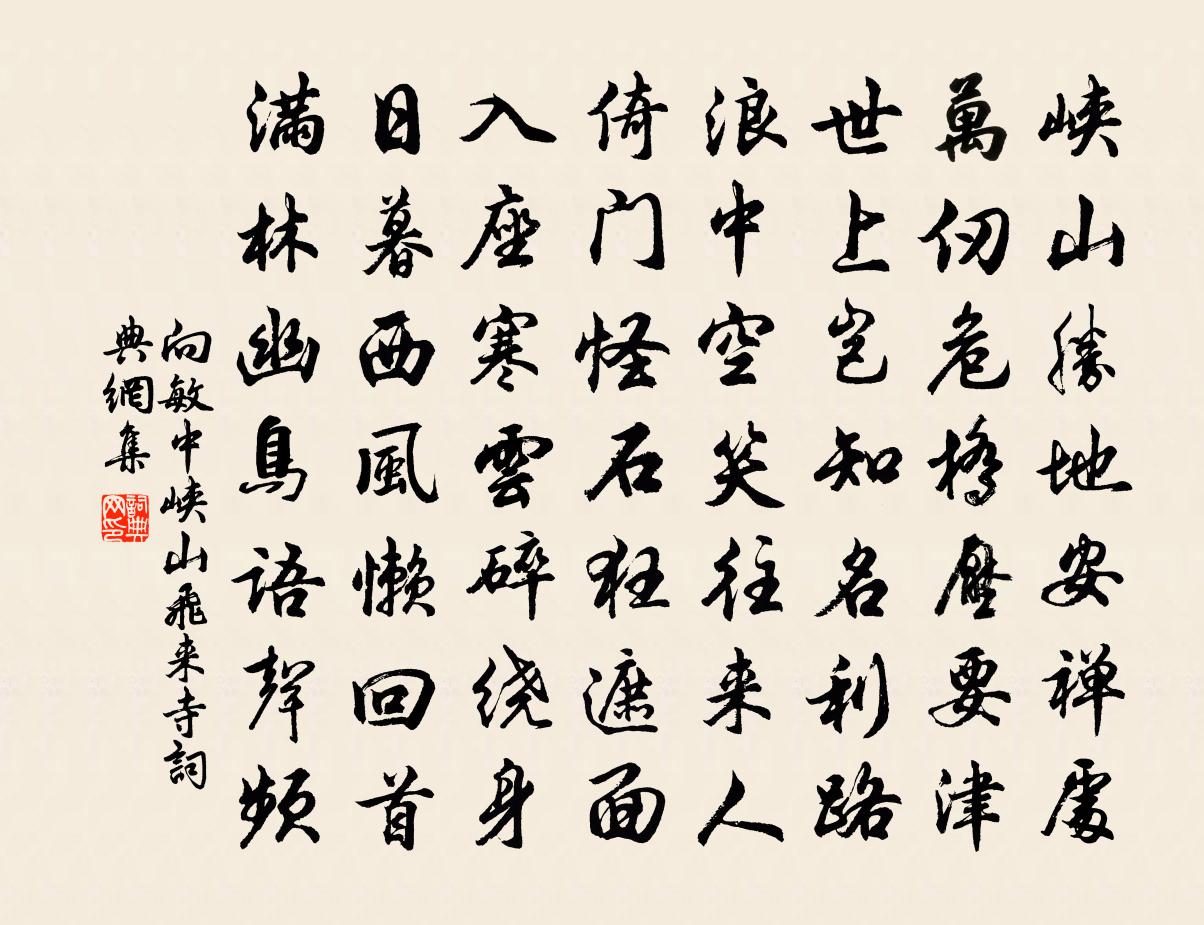 峡山勝地安禅處
萬仞危橋壓要津
世上豈知名利路
浪中空笑往来人
倚门怪石狂遮面
入座寒雲碎绕身
日暮西風懒回首
满林幽鳥語聲頻
向敏中峡山飛来寺詞
典網集
詞典
网印